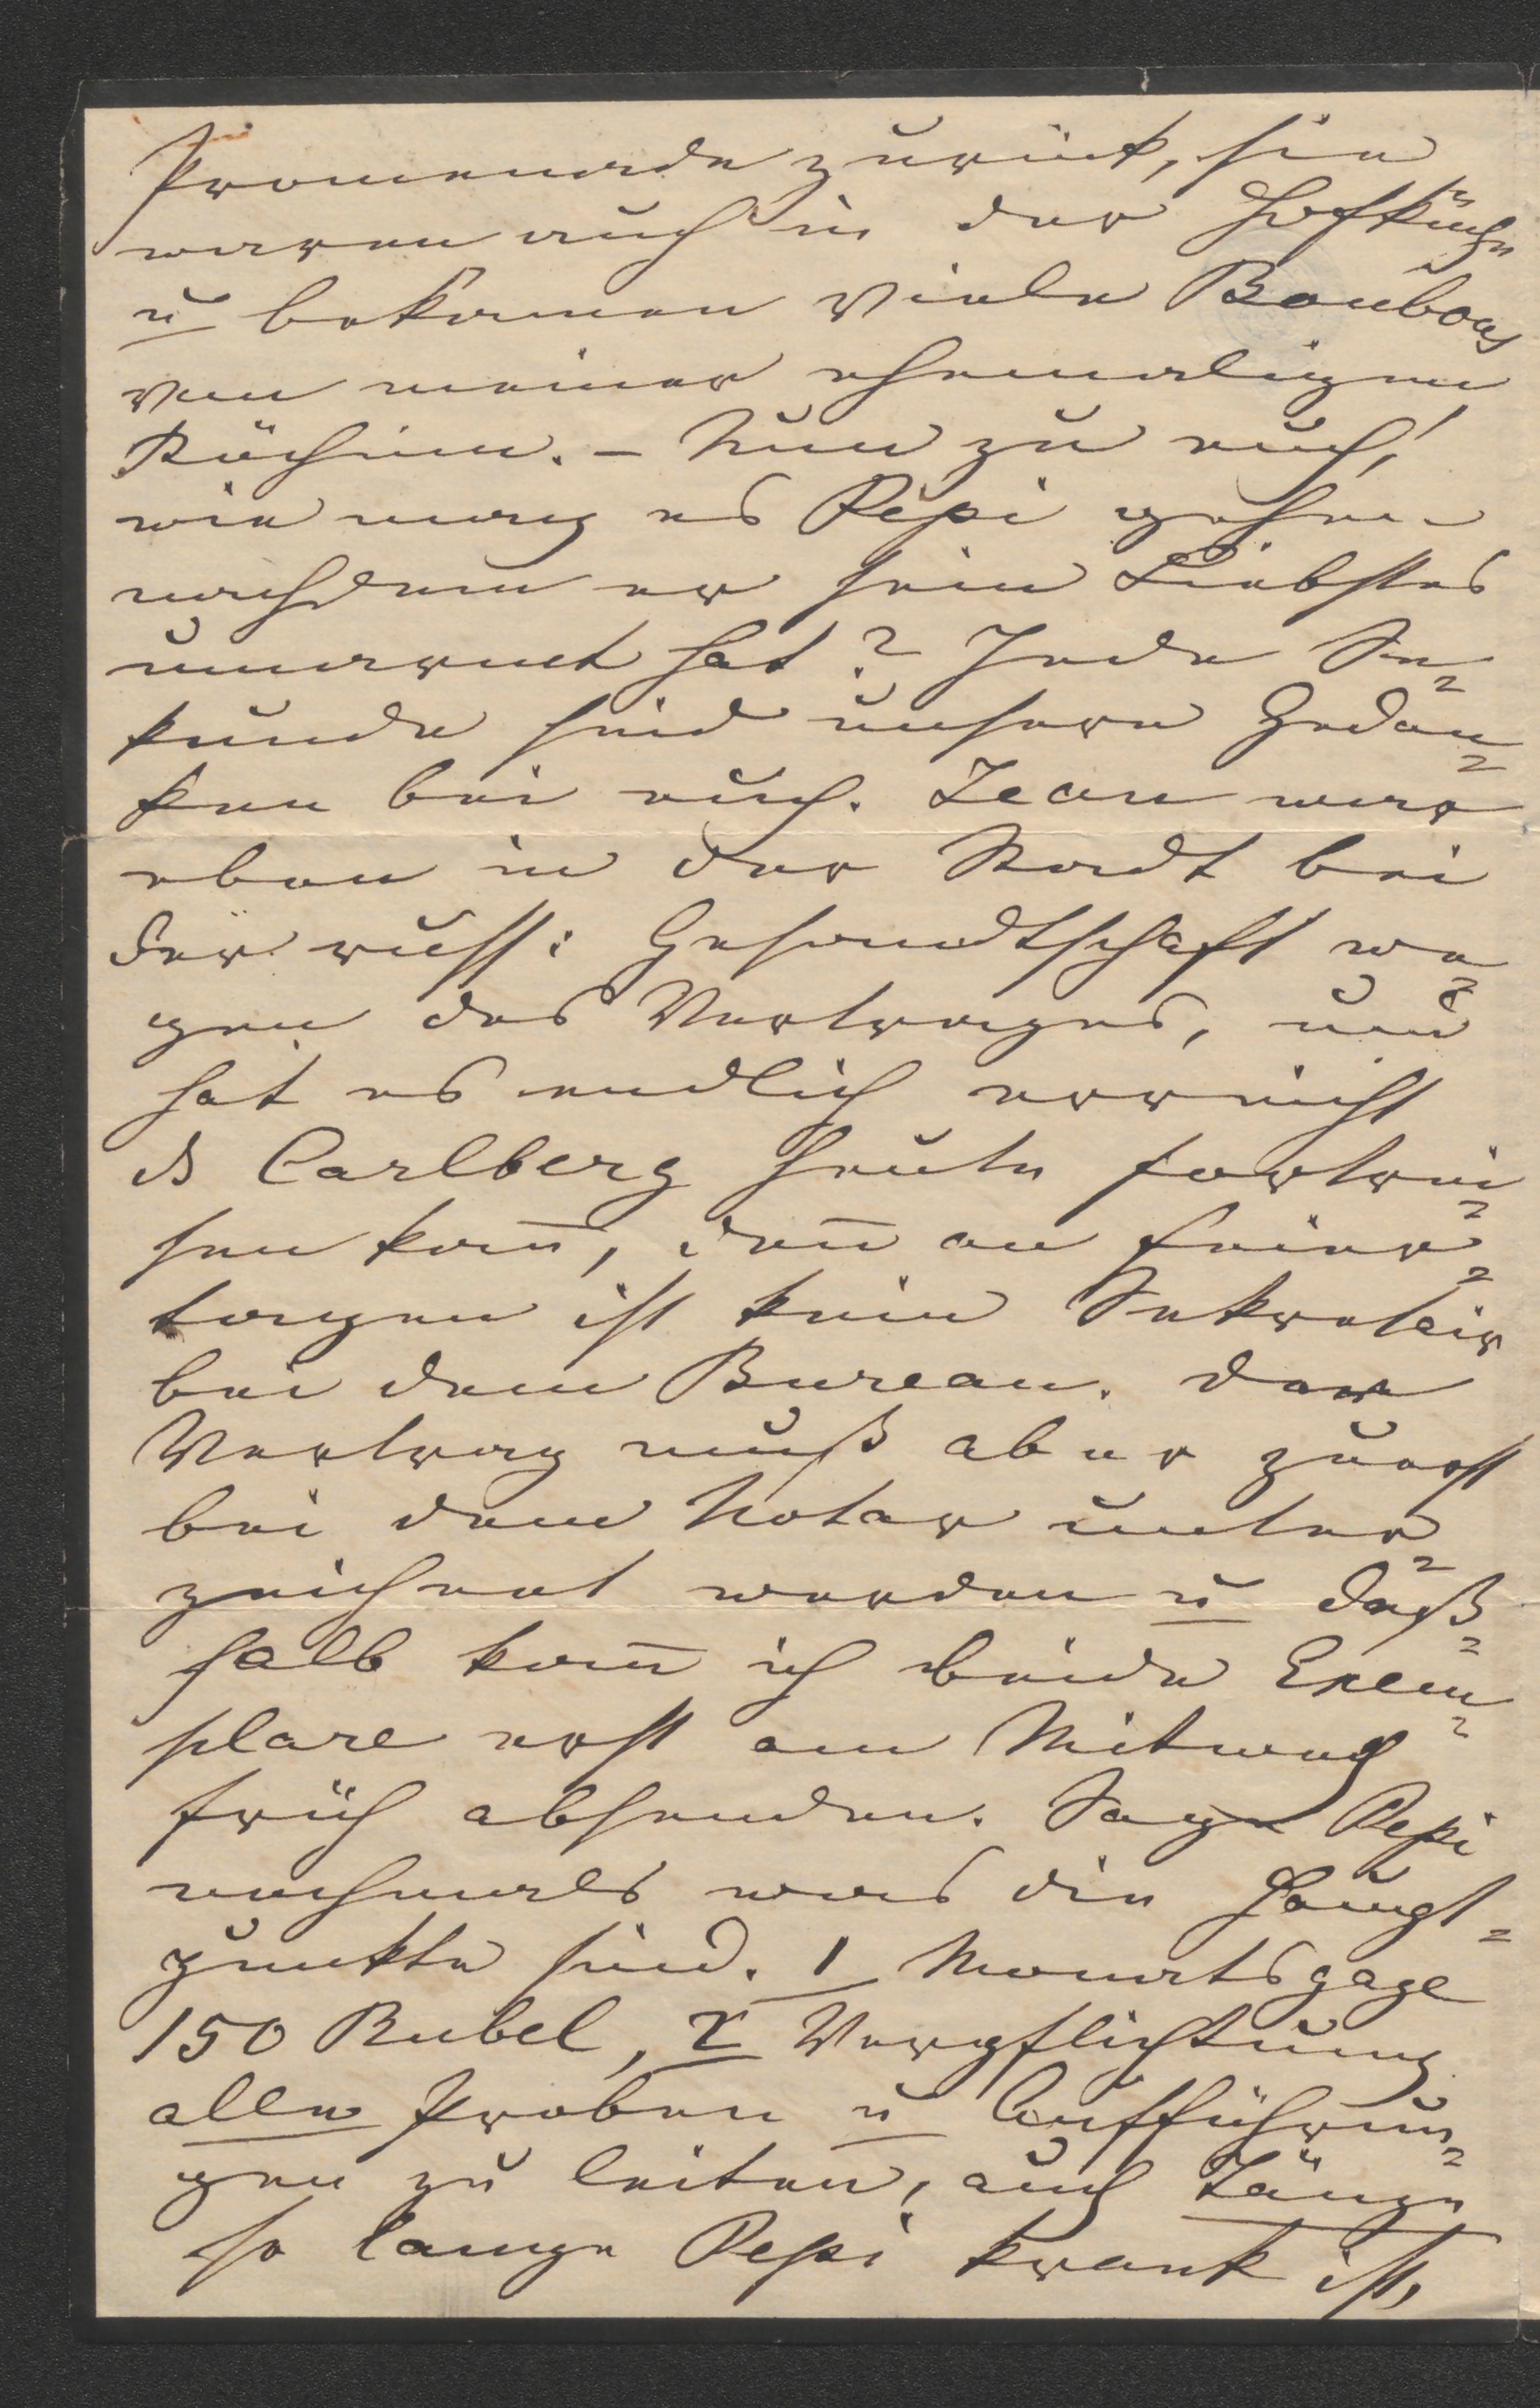 Promenade zurück, sie
waren auch in der Hofküche
u bekamen viele Bonbons
von meiner ehemaligen
Köchinn. – Nun zu euch!
wie mag es Pepi gehen
nachdem er sein Liebstes
umarmt hat? Jede Se=
kunde sind unsere Gedan=
ken bei euch. Jean war
eben in der Stadt bei
der russ: Gesandtschaft we=
gen des Vertrages, und
hat es endlich erreicht
ds Carlberg heute fortrei=
sen kañ, deñ an Feier=
tagen ist kein Sekretair
bei dem Bureau. Der
Vertrag muß aber zuerst
bei dem Notar unter=
zeichnet werden u deß=
halb kañ ich beide Exem=
plare erst am Mitwoch
früh absenden. Sage Pepi
nochmals was die Haupt=
punkte sind. 1 Monatsgage
150 Rubel, 2 Verpflichtung
alle Proben u Aufführun=
gen zu leiten, auch Tänze
so lange Pepi krank ist,